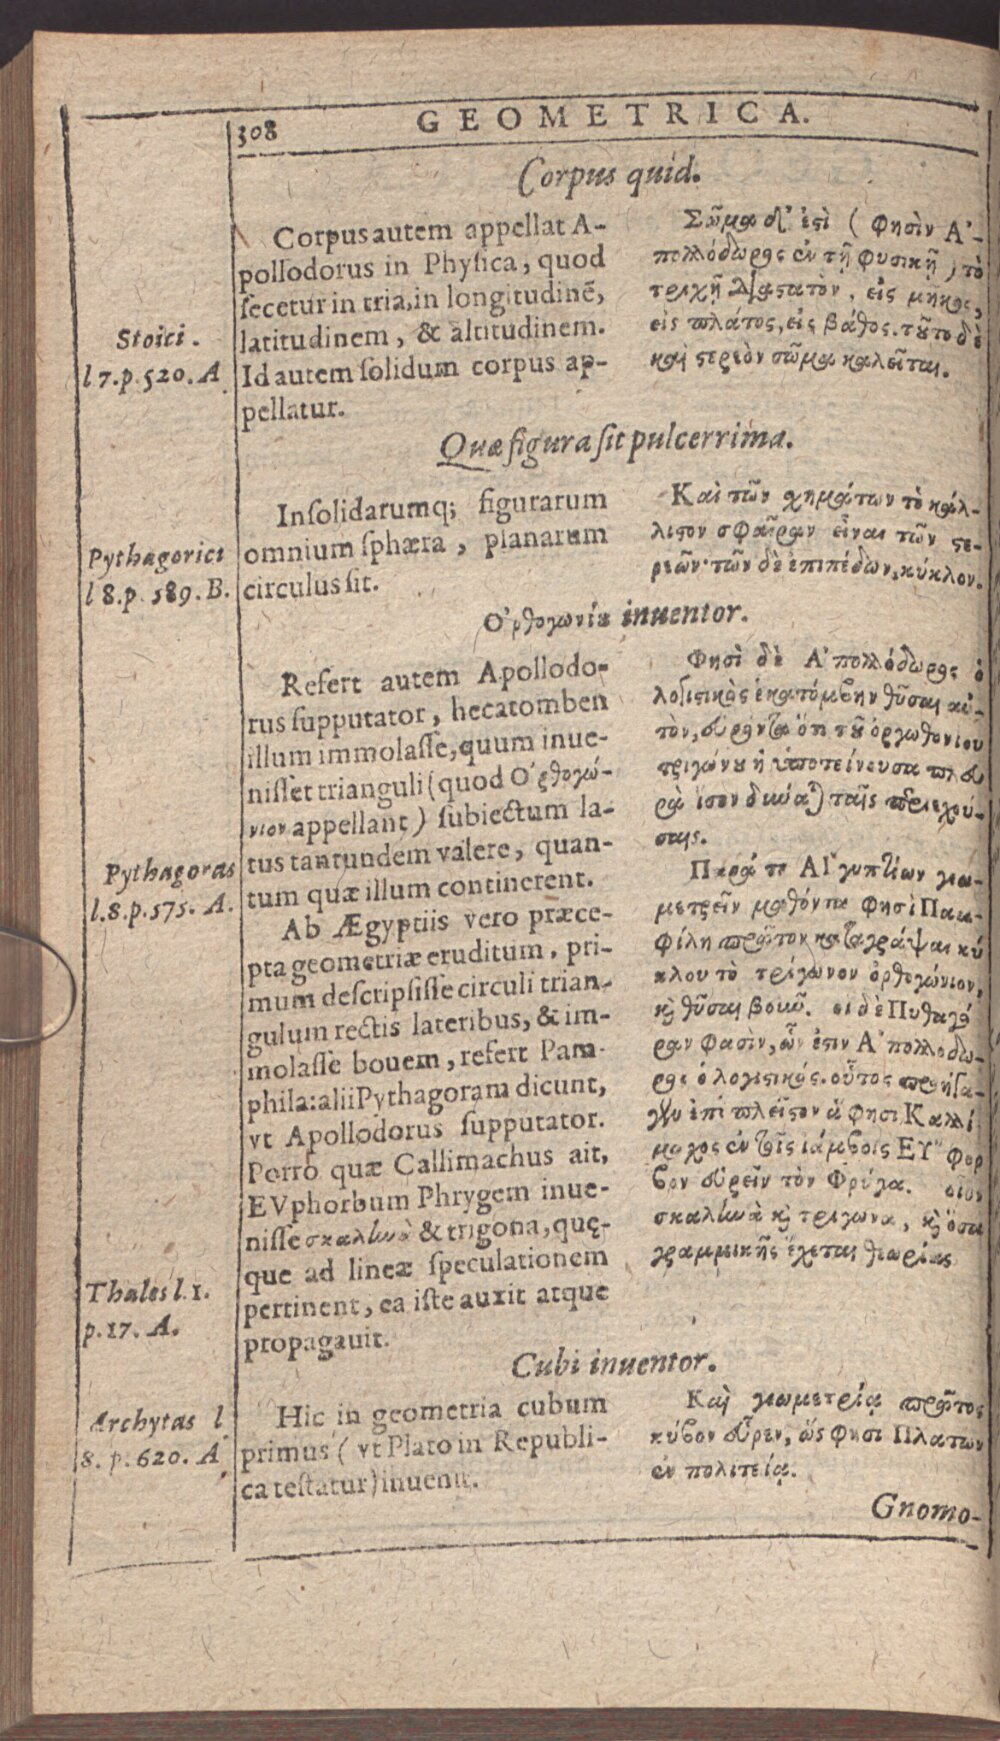 308 GEOMETRICA.
Corpus quid.
Stoici.
l 7. p. 520. A
Corpus autem appellat A-
pollodorus in Physica, quod
secetur in tria, in longitudinē,
latitudinem, & altitudinem.
Id autem solidum corpus ap-
pellatur.
Σῶμα δ' ἐστὶ (φησὶν Ἀ-
πολλόδωρος ἐν τῇ φυσικῇ) τὸ
τριχῆ διαστατὸν, εἰς μῆκος,
εἰς πλάτος, εἰς βάθος. τοῦτο δὲ
καὶ στερεὸν σῶμα καλεῖται.
Quæ figura sit pulcerrima.
Pythagorici
l 8. p. 589. B.
In solidarumq; figurarum
omnium sphæra, planarum
circulus sit.
Καὶ τῶν χημάτων τὸ κάλ-
λιστον σφαῖραν εἶναι τῶν στε-
ρεῶν· τῶν δὲ ἐπιπέδων, κύκλον.
Ὀρθογωνίου inuentor.
Pythagoras
l. 8. p. 575. A.
Refert autem Apollodo-
rus supputator, hecatomben
illum immolasse, quum inue-
nisset trianguli (quod Ὀρθογώ-
νιον appellant) subiectum la-
tus tantundem valere, quan-
tum quæ illum continerent.
Φησὶ δὲ Ἀπολλόδωρος ὁ
λογιστικὸς ἑκατόμβην θῦσαι αὐ-
τὸν, εὑρόντα ὅτι τοῦ ὀργωθονιου
τριγώνου ἡ ὑποτείνουσα πλευ
ρὰ ἴσον δύναται ταῖς περιεχού-
σαις.
Thales l. 1.
p. 17. A.
Ab Ægyptiis vero præce-
pta geometriæ eruditum, pri-
mum descripsisse circuli trian-
gulum rectis lateribus, & im-
molasse bouem, refert Pam-
phila: alii Pythagoram dicunt,
vt Apollodorus supputator.
Porro quæ Callimachus ait,
EVphorbum Phrygem inue-
nisse σκαληνὰ & trigona, quę-
que ad lineæ speculationem
pertinent, ea iste auxit atque
propagauit.
Παρά τε ΑΙγυπτίων γεω-
μετρεῖν μαθόντα φησὶ Παμ-
φίλη πρῶτον καταγράψαι κύ
κλου τὸ τρίγωνον ὀρθογώνιον,
καὶ θῦσαι βοῦν. οἱ δὲ Πυθαγό
ραν φασὶν, ὧν ἐστιν Ἀπολλοδω-
ρος ὁ λογιστικός. οὗτος προήγα-
γεν ἐπὶ πλεῖστον ἅ φησι Καλλί
μαχος ἐν τοῖς ἰάμβοις ΕΥφορ
βον εὑρεῖν τὸν Φρύγα. οἷον
σκαληνὰ καὶ τρίγωνα, καὶ ὅσα
γραμμικῆς ἔχεται θεωρίας
Cubi inuentor.
Archytas l
8. p. 620. A
Hic in geometria cubum
primus (vt Plato in Republi-
ca testatur) inuenit.
Καὶ γεωμετρίᾳ πρῶτος
κύβον εὗρεν, ὥς φησι Πλατων
ἐν πολιτείᾳ.
Gnomo-